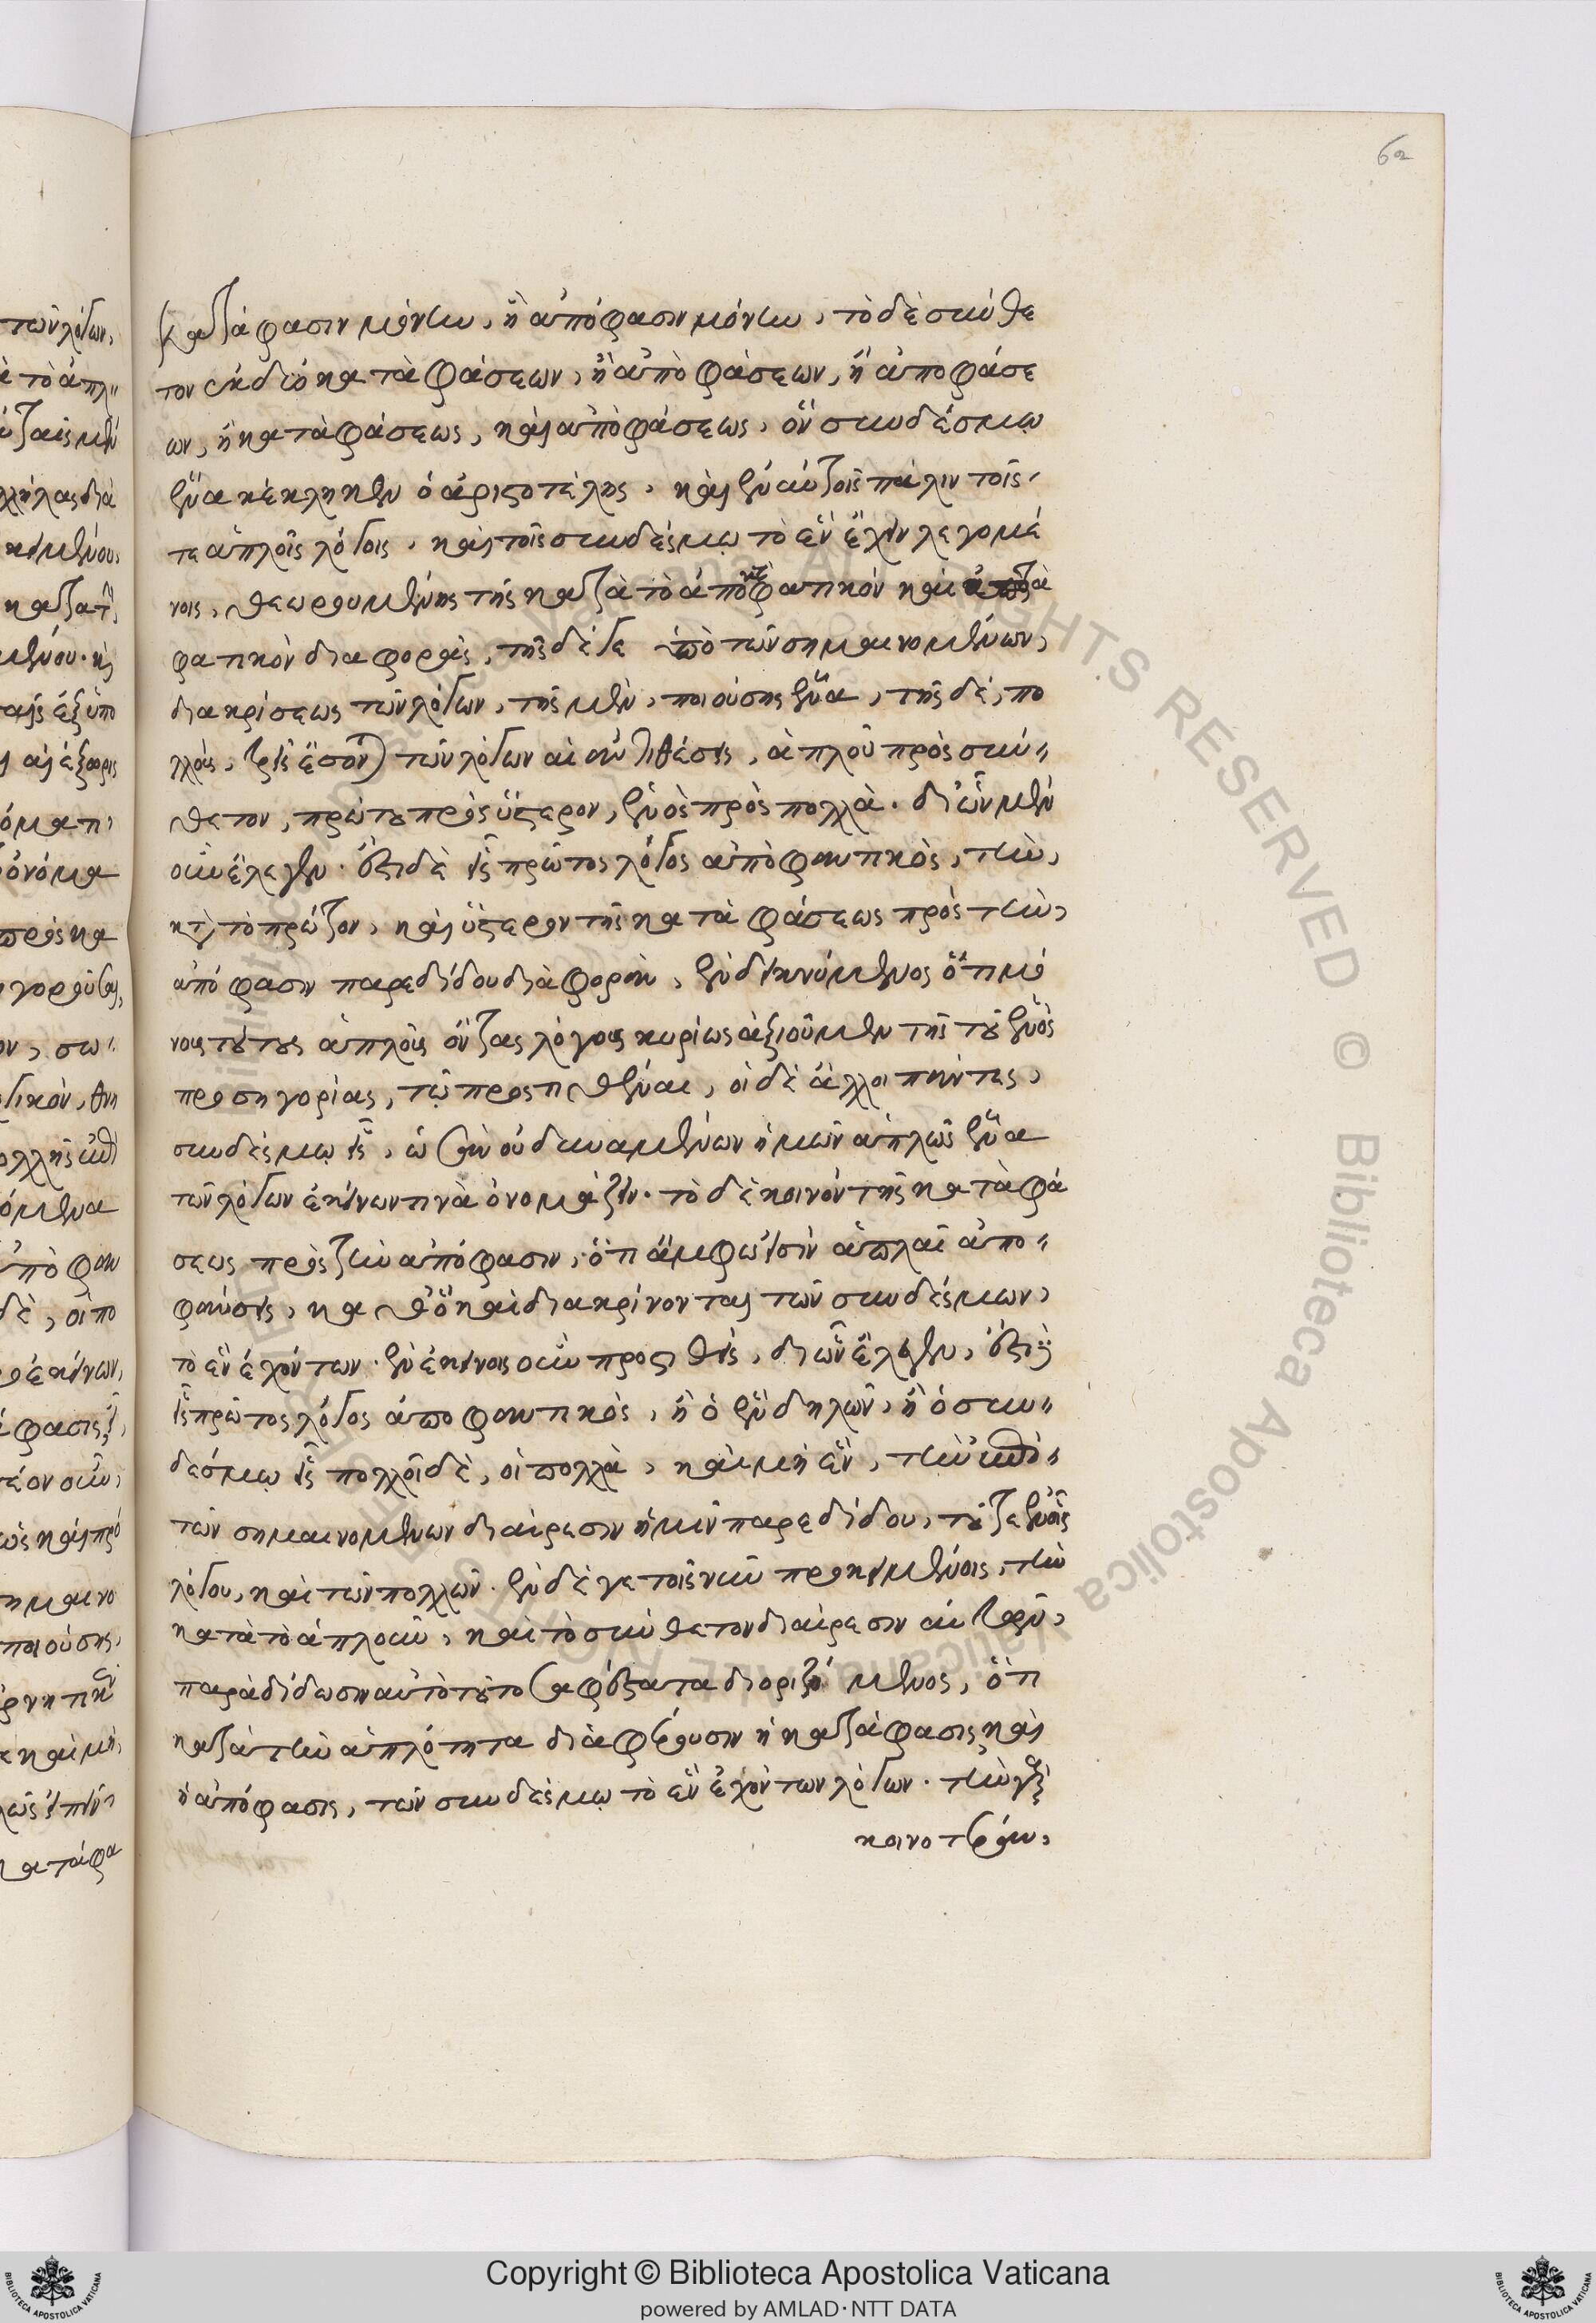 62
κατάφασιν μόνην, ἢ ἀπόφασιν μόνην, τὸ δὲ σύνθε
τον ἐκ δύο καταφάσεων, ἢ ἀποφάσεων, ἢ ἀποφάσε
ων, ἢ καταφάσεως, καὶ ἀποφάσεως, ὃν συνδέσμῳ
ἕνα κέκληκεν ὁ ἀριστοτέλης, καὶ ἐν αὐτοῖς πάλιν τοῖς
τε ἁπλοῖς λόγοις, καὶ τοῖς συνδέσμῳ τὸ ἓν ἔχειν λεγομέ
νοις, θεωρουμένης τῆς κατὰ τὸ ἀποφατικὸν καὶ
φατικὸν διαφορᾶς, τῆς δέ γε ἀπὸ τῶν σημαινομένων,
διακρίσεως τῶν λόγων, τῆς μὲν, ποιούσης ἕνα, τῆς δὲ, πο
λλοὺς, τρεῖς ἔσονται τῶν λόγων αἱ ἀντιθέσεις, ἁπλοῦ πρὸς σύν
θετον, πρώτου πρὸς ὕστερον, ἑνὸς πρὸς πολλὰ. δι' ὧν μὲν
οὖν ἔλεγεν. ἔστι δὲ εἷς πρῶτος λόγος ἀποφαντικὸς, τὴν,
κατὰ τὸ πρῶτον, καὶ ὕστερον τῆς καταφάσεως πρὸς τὴν,
ἀπόφασιν παρεδίδου διαφορὰν, ἐνδεικνύμενος ὅτι μό
νους τούτους ἁπλοῦς ὄντας λόγους κυρίως ἀξιοῦμεν τῆς τοῦ ἑνὸς
προσηγορίας, τῷ προστιθέναι, οἱ δὲ ἄλλοι πάντες,
συνδέσμῳ εἷς, ὡσὰν οὐ δυναμένων ἡμῶν ἁπλῶς ἕνα
τῶν λόγων ἐκείνων τινὰ ὀνομάζειν. τὸ δὲ κοινὸν τῆς καταφά
σεως πρὸς τὴν ἀπόφασιν, ὅτι ἄμφω εἰσὶν ἁπλαῖ ἀπο
φάνσεις, καθ' ὃ καὶ διακρίνονται τῶν συνδέσμων,
τὸ ἓν ἐχόντων. ἐν ἐκείνοις οὖν προστιθεὶς, δι' ὧν ἔλεγεν, ἔστι δὲ
εἷς πρῶτος λόγος ἀποφαντικὸς, ἢ ὁ ἓν δηλῶν, ἢ ὁ συν
δέσμῳ εἷς πολλοὶ δὲ, οἱ πολλὰ, καὶ μὴ ἓν, τὴν ἀπὸ
τῶν σημαινομένων διαίρεσιν ἡμῖν παρεδίδου, τοῦ τε ἑνὸς
λόγου, καὶ τῶν πολλῶν. ἐν δέ γε τοῖς νῦν προκειμένοις, τὴν
κατὰ τὸ ἁπλοῦν, καὶ τὸ σύνθετον διαίρεσιν αὐτῶν,
παραδίδωσιν αὐτὸ τοῦτο σαφέστατα διοριζόμενος, ὅτι
κατὰ τὴν ἁπλότητα διαφέρουσιν ἡ κατάφασις καὶ
ἡ ἀπόφασις, τῶν συνδέσμῳ τὸ ἓν ἐχόντων λόγων. τὴν γὰρ
κοινοτέραν,
Copyright © Biblioteca Apostolica Vaticana
powered by AMLAD·NTT DATA